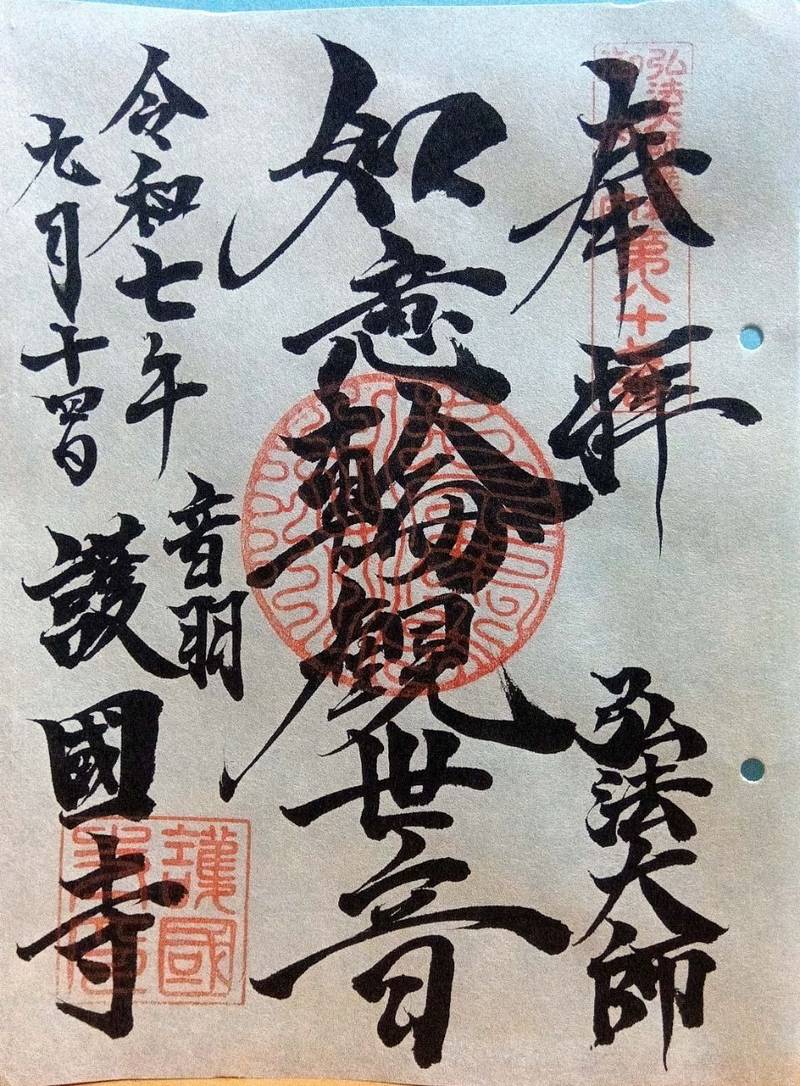 奉拝
弘法大師
第八十七番
弘法大師
如意輪観世音
令和七年
九月十四日
音羽
護國寺
護國